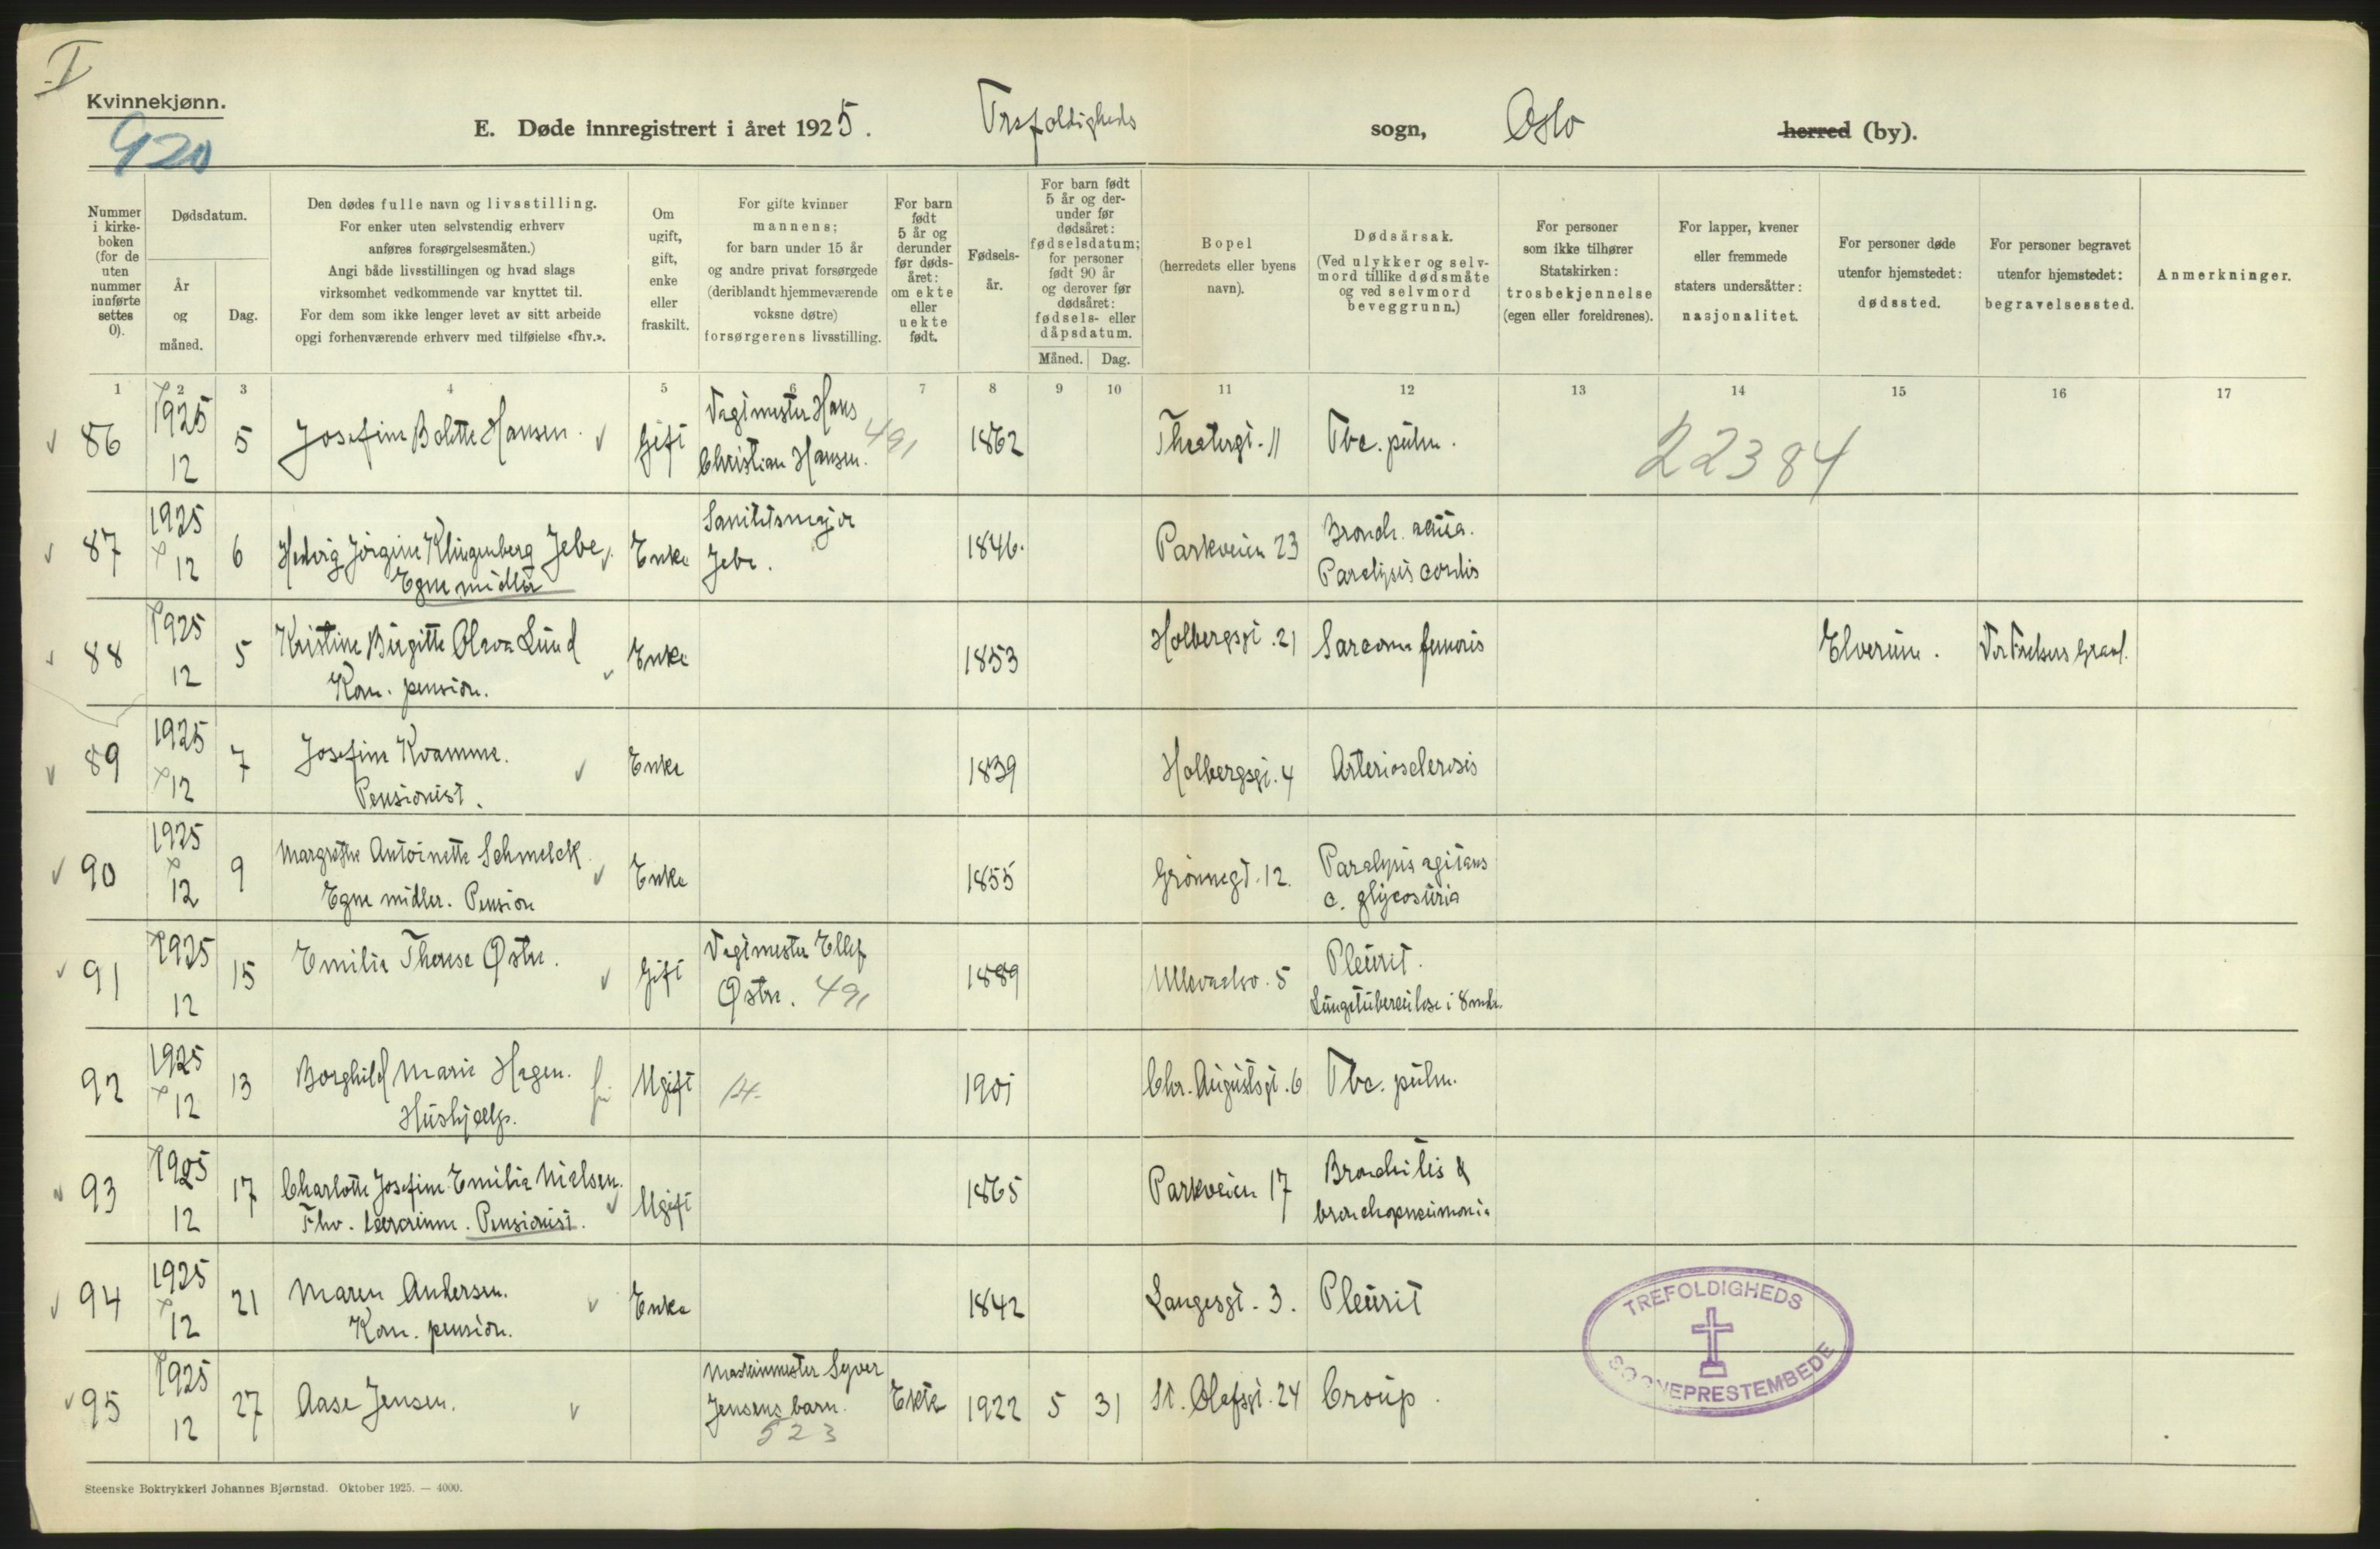 I
Kvinnekjønn.
920
E. Døde innregistrert i året 1925. Trefoldigheds sogn, Oslo herred (by).
Nummer i kirke-boken (for de uten nummer innførte settes 0).
Dødsdatum.
År og måned.
Dag.
Den dødes fulle navn og livsstilling.
For enker uten selvstendig erhverv
anføres forsørgelsesmåten.)
Angi både livsstillingen og hvad slags
virksomhet vedkommende var knyttet til.
For dem som ikke lenger levet av sitt arbeide
opgi forhenværende erhverv med tilføielse «fhv.».
Om ugift, gift, enke eller fraskilt.
For gifte kvinner
mannens;
for barn under 15 år
og andre privat forsørgede
(deriblandt hjemmeværende
voksne døtre)
forsørgerens livsstilling.
For barn født 5 år og derunder før døds-året: om ekte eller uekte født.
Fødsels-år.
For barn født 5 år og der-under før dødsåret: fødselsdatum; for personer født 90 år og derover før dødsåret: fødsels- eller dåpsdatum.
Måned. Dag.
Bopel
(herredets eller byens
navn).
Dødsårsak.
(Ved ulykker og selv-
mord tillike dødsmåte
og ved selvmord
beveggrunn.)
For personer
som ikke tilhører
Statskirken:
trosbekjennelse
(egen eller foreldrenes).
For lapper, kvener
eller fremmede
staters undersåtter:
nasjonalitet.
For personer døde
utenfor hjemstedet:
dødssted.
For personer begravet
utenfor hjemstedet:
begravelsessted.
Anmerkninger.
1 2 3 4 5 6 7 8 9 10 11 12 13 14 15 16 17
86 1925 12 5 Josefine Bolette Hansen. Gift Vagtmester Hans Christian Hansen. 491 1862 Theatergt. 11 Tbc. pulm. 22384
87 1925 12 6 Hedvig Jörgine Klingenberg Jebe, Egne midler Enke Sanitetsmajor Jebe. 1846. Parkveien 23 Bronch. acuta. Paralysis cordis
88 1925 12 5 Kristine Birgitte Olava Lund Kom. pension. Enke 1853 Holbergsgt. 21 Sarcoma femoris Elverum. Vor Frelsers Gravl.
89 1925 12 7 Josefine Kvamme. Pensionist. Enke 1839 Holbergsgt. 4 Arteriosclerosis
90 1925 12 9 Margrethe Antoinette Schmelck Egne midler. Pension Enke 1855 Grönnegt. 12. Paralysis agitans c. glycosuria
91 1925 12 15 Emilie Therese Østre. Gift Vagtmester Ellef Østre. 491 1889 Ullevaalsv. 5 Pleurit. Lungetuberculose i 8 mdr.
92 1925 12 13 Borghild Marie Hagen. Hushjælp. Ugift 14. 1901 Chr. Augustsgt. 6 Tbc. pulm.
93 1925 12 17 Charlotte Josefine Emilie Nielsen. Fhv. Lærerinne. Pensionist. Ugift 1865 Parkveien 17 Bronchitis & bronchopneumoni.
94 1925 12 21 Maren Andersen. Kom. pension. Enke 1842 Langesgt. 3. Pleurit
95 1925 12 27 Aase Jensen. Maskinmester Syver Jensens barn. 523 Ekte 1922 5 31 St. Olafsgt. 24 Croup.
TREFOLDIGHEDS
SOGNEPRESTEMBEDE
Steenske Boktrykkeri Johannes Bjørnstad. Oktober 1925. — 4000.